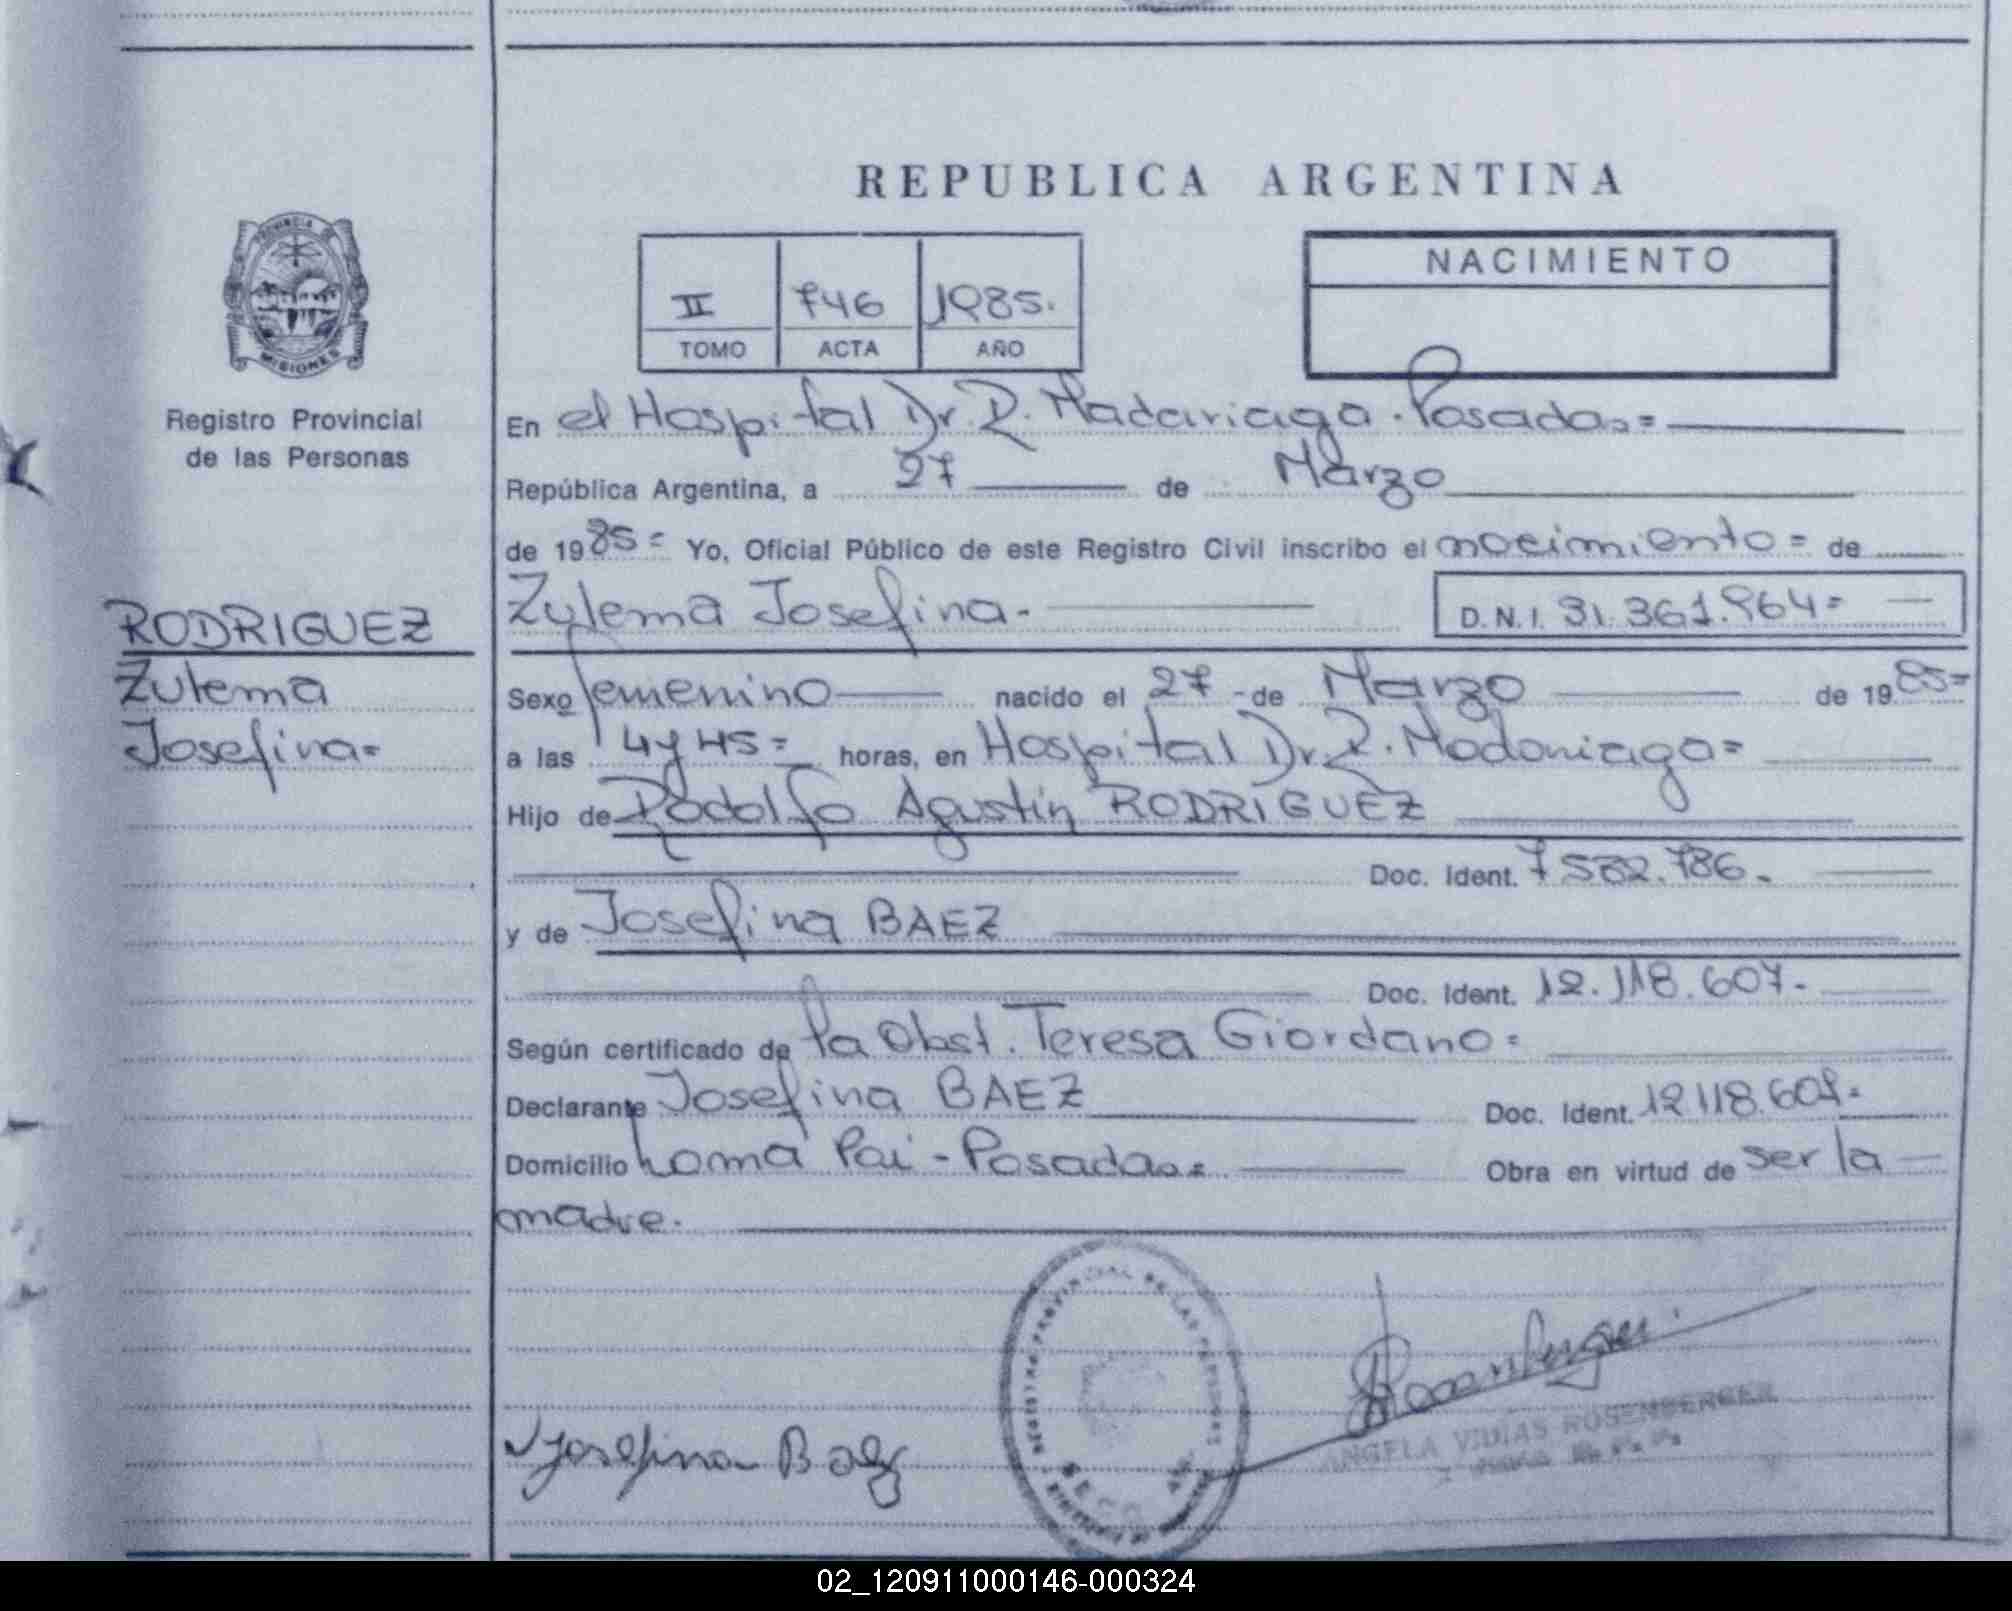 REPUBLICA ARGENTINA
PROVINCIA DE
MISIONES
Registro Provincial
de las Personas
II 746 1985.
TOMO ACTA AÑO
NACIMIENTO
En el Hospital Dr. R. Madariaga. Posadas=
República Argentina, a 27 de Marzo
de 1985= Yo, Oficial Público de este Registro Civil inscribo el nacimiento= de
Zulema Josefina.- D.N.I. 31.361.964=
RODRIGUEZ
Zulema
Josefina=
Sexo femenino nacido el 27 - de Marzo de 1985=
a las 4 y 45= horas, en Hospital Dr. R. Madariaga=
Hijo de Rodolfo Agustín RODRIGUEZ
Doc. Ident. 7 582.786.
y de Josefina BAEZ
Doc. Ident. 12.118.607.-
Según certificado de la Obst. Teresa Giordano=
Declarante Josefina BAEZ Doc. Ident. 12118.607.=
Domicilio Loma Pai - Posadas= Obra en virtud de ser la
madre.
REGISTRO PROVINCIAL DE LAS PERSONAS
Josefina Baez
Rosenberger
ANGELA VIDIAS ROSENBERGER
02_120911000146-000324